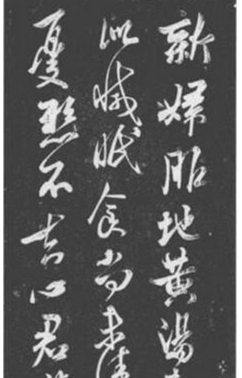 新婦服地黃湯
似減眠食尚未佳
憂懸不去心君